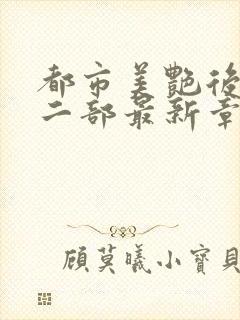 都市美艷後
二部最新章
顧莫曦小寶貝